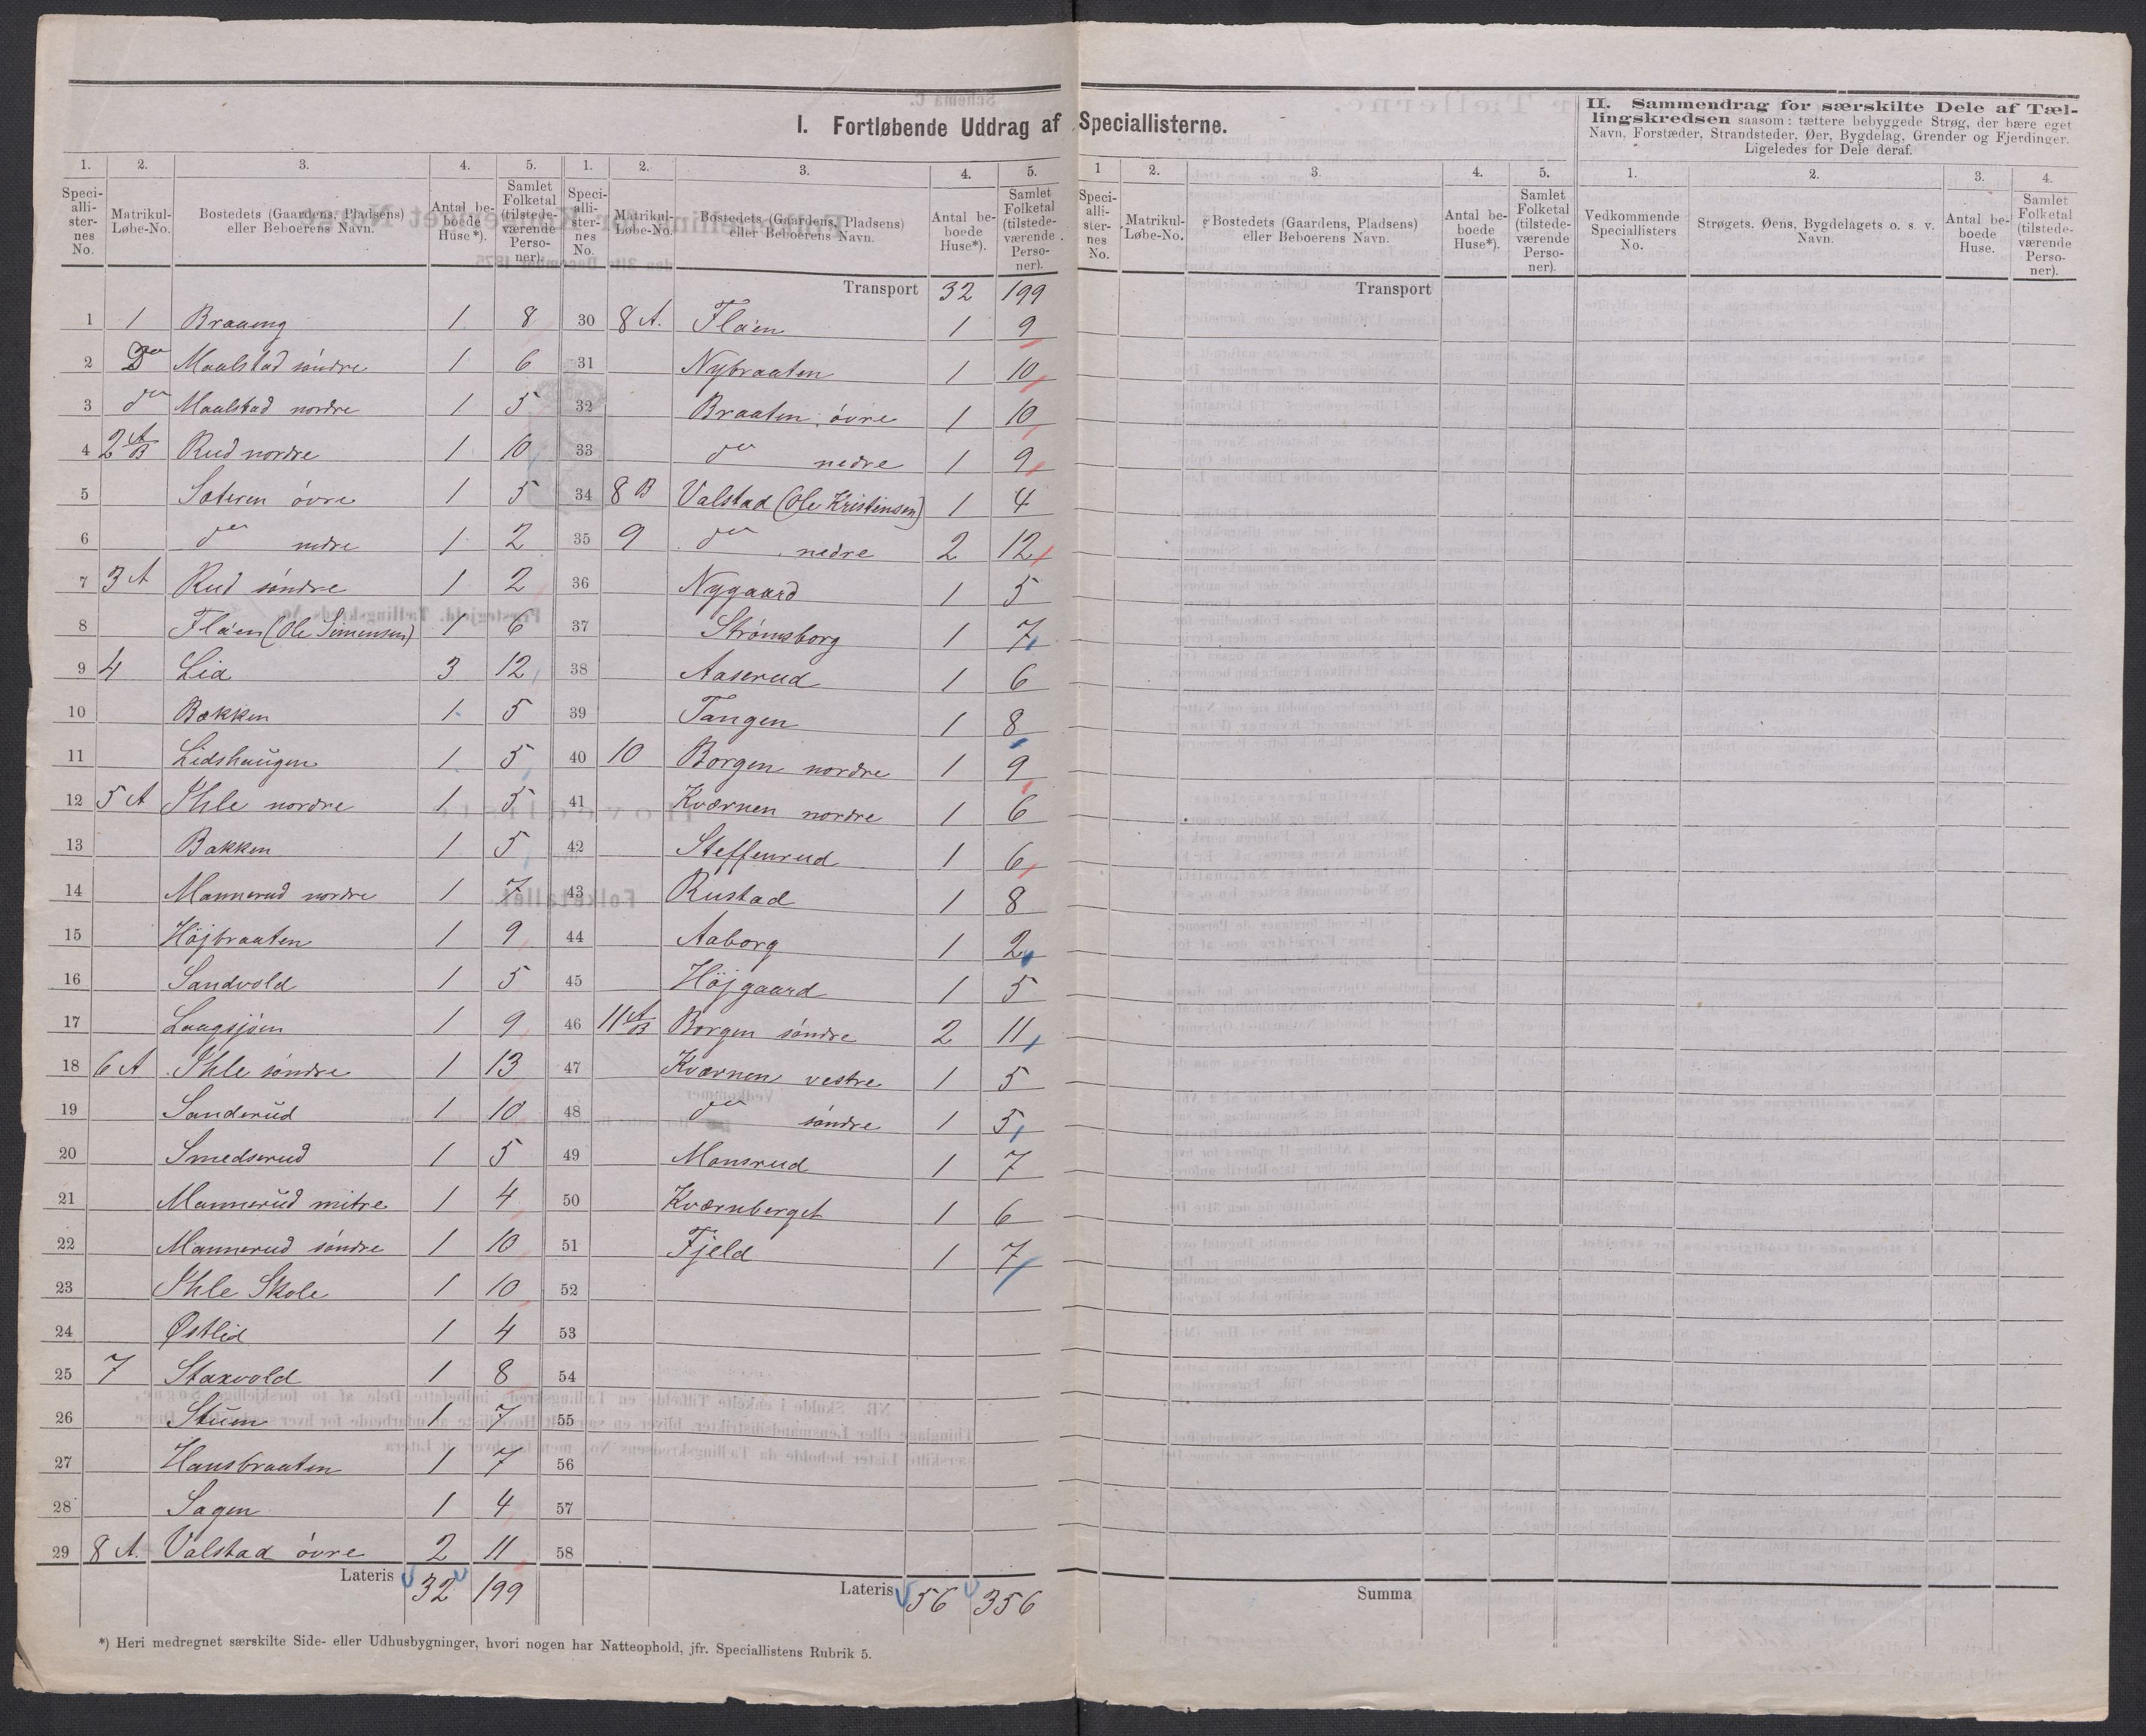 I. Fortløbende Uddrag af Speciallisterne.
II. Sammendrag for særskilte Dele af Tæl-
lingskredsen saasom: tættere bebyggede Strøg, der bære eget
Navn, Forstæder, Strandsteder, Øer, Bygdelag, Grender og Fjerdinger.
Ligeledes for Dele deraf.
1. 2. 3. 4. 5. 1. 2. 3. 4. 5. 1 2. 3. 4. 5. 1. 2. 3. 4.
Speci-alli-ster-nes No. Matrikul-Løbe-No. Bostedets (Gaardens, Pladsens) eller Beboerens Navn. Antal be-boede Huse*). Samlet Folketal (tilstede-værende Perso-ner).
Speci-alli-ster-nes No. Matrikul-Løbe-No. Bostedets (Gaardens, Pladsens) eller Beboerens Navn. Antal be-boede Huse*). Samlet Folketal (tilstede-værende Perso-ner).
Speci-alli-ster-nes No. Matrikul-Løbe-No. Bostedets (Gaardens, Pladsens) eller Beboerens Navn. Antal be-boede Huse*). Samlet Folketal (tilstede-værende Perso-ner).
Vedkommende Speciallisters No. Strøgets. Øens, Bygdelagets o. s. v. Navn. Antal be-boede Huse. Samlet Folketal (tilstede-værende Perso-ner).
1 1 Braaeng 1 8
2 Do Maalstad söndre 1 6
3 do Maalstad nordre 1 5
4 2 A/B Rud nordre 1 10
5 Sæteren övre 1 5
6 do nedre 1 2
7 3 A Rud söndre 1 2
8 Flåen (Ole Simensen) 1 6
9 4 Lid 3 12
10 Bakken 1 5
11 Lidshaugen 1 5
12 5 A Ihle nordre 1 5
13 Bakken 1 5
14 Mannerud nordre 1 7
15 Höjbraaten 1 9
16 Sandvold 1 5
17 Langsjöen 1 9
18 6 A Ihle söndre 1 13
19 Sanderud 1 10
20 Smedsrud 1 5
21 Mannerud mitre 1 4
22 Mannerud söndre 1 10
23 Ihle Skole 1 10
24 Østlid 1 4
25 7 Staxvold 1 8
26 Stuen 1 7
27 Hansbraaten 1 7
28 Sagen 1 4
29 8 A. Valstad övre 2 11
Lateris 32 199
Transport 32 199
30 8 A. Flåen 1 9
31 Nybraaten 1 10
32 Braaten övre 1 10
33 do nedre 1 9
34 8 B Valstad (Ole Kristensen) 1 4
35 9 do nedre 2 12
36 Nygaard 1 5
37 Strömsborg 1 7
38 Aaserud 1 6
39 Tangen 1 8
40 10 Borgen nordre 1 9
41 Kværnen nordre 1 6
42 Steffenrud 1 6
43 Rustad 1 8
44 Aaborg 1 2
45 Höjgaard 1 5
46 11 A/B Borgen söndre 2 11
47 Kværnen vestre 1 5
48 do söndre 1 5
49 Monsrud 1 7
50 Kværnberget 1 6
51 Fjeld 1 7
52
53
54
55
56
57
58
Lateris 56 356
Transport
Summa
*) Heri medregnet særskilte Side- eller Udhusbygninger, hvori nogen har Natteophold, jfr. Speciallistens Rubrik 5.